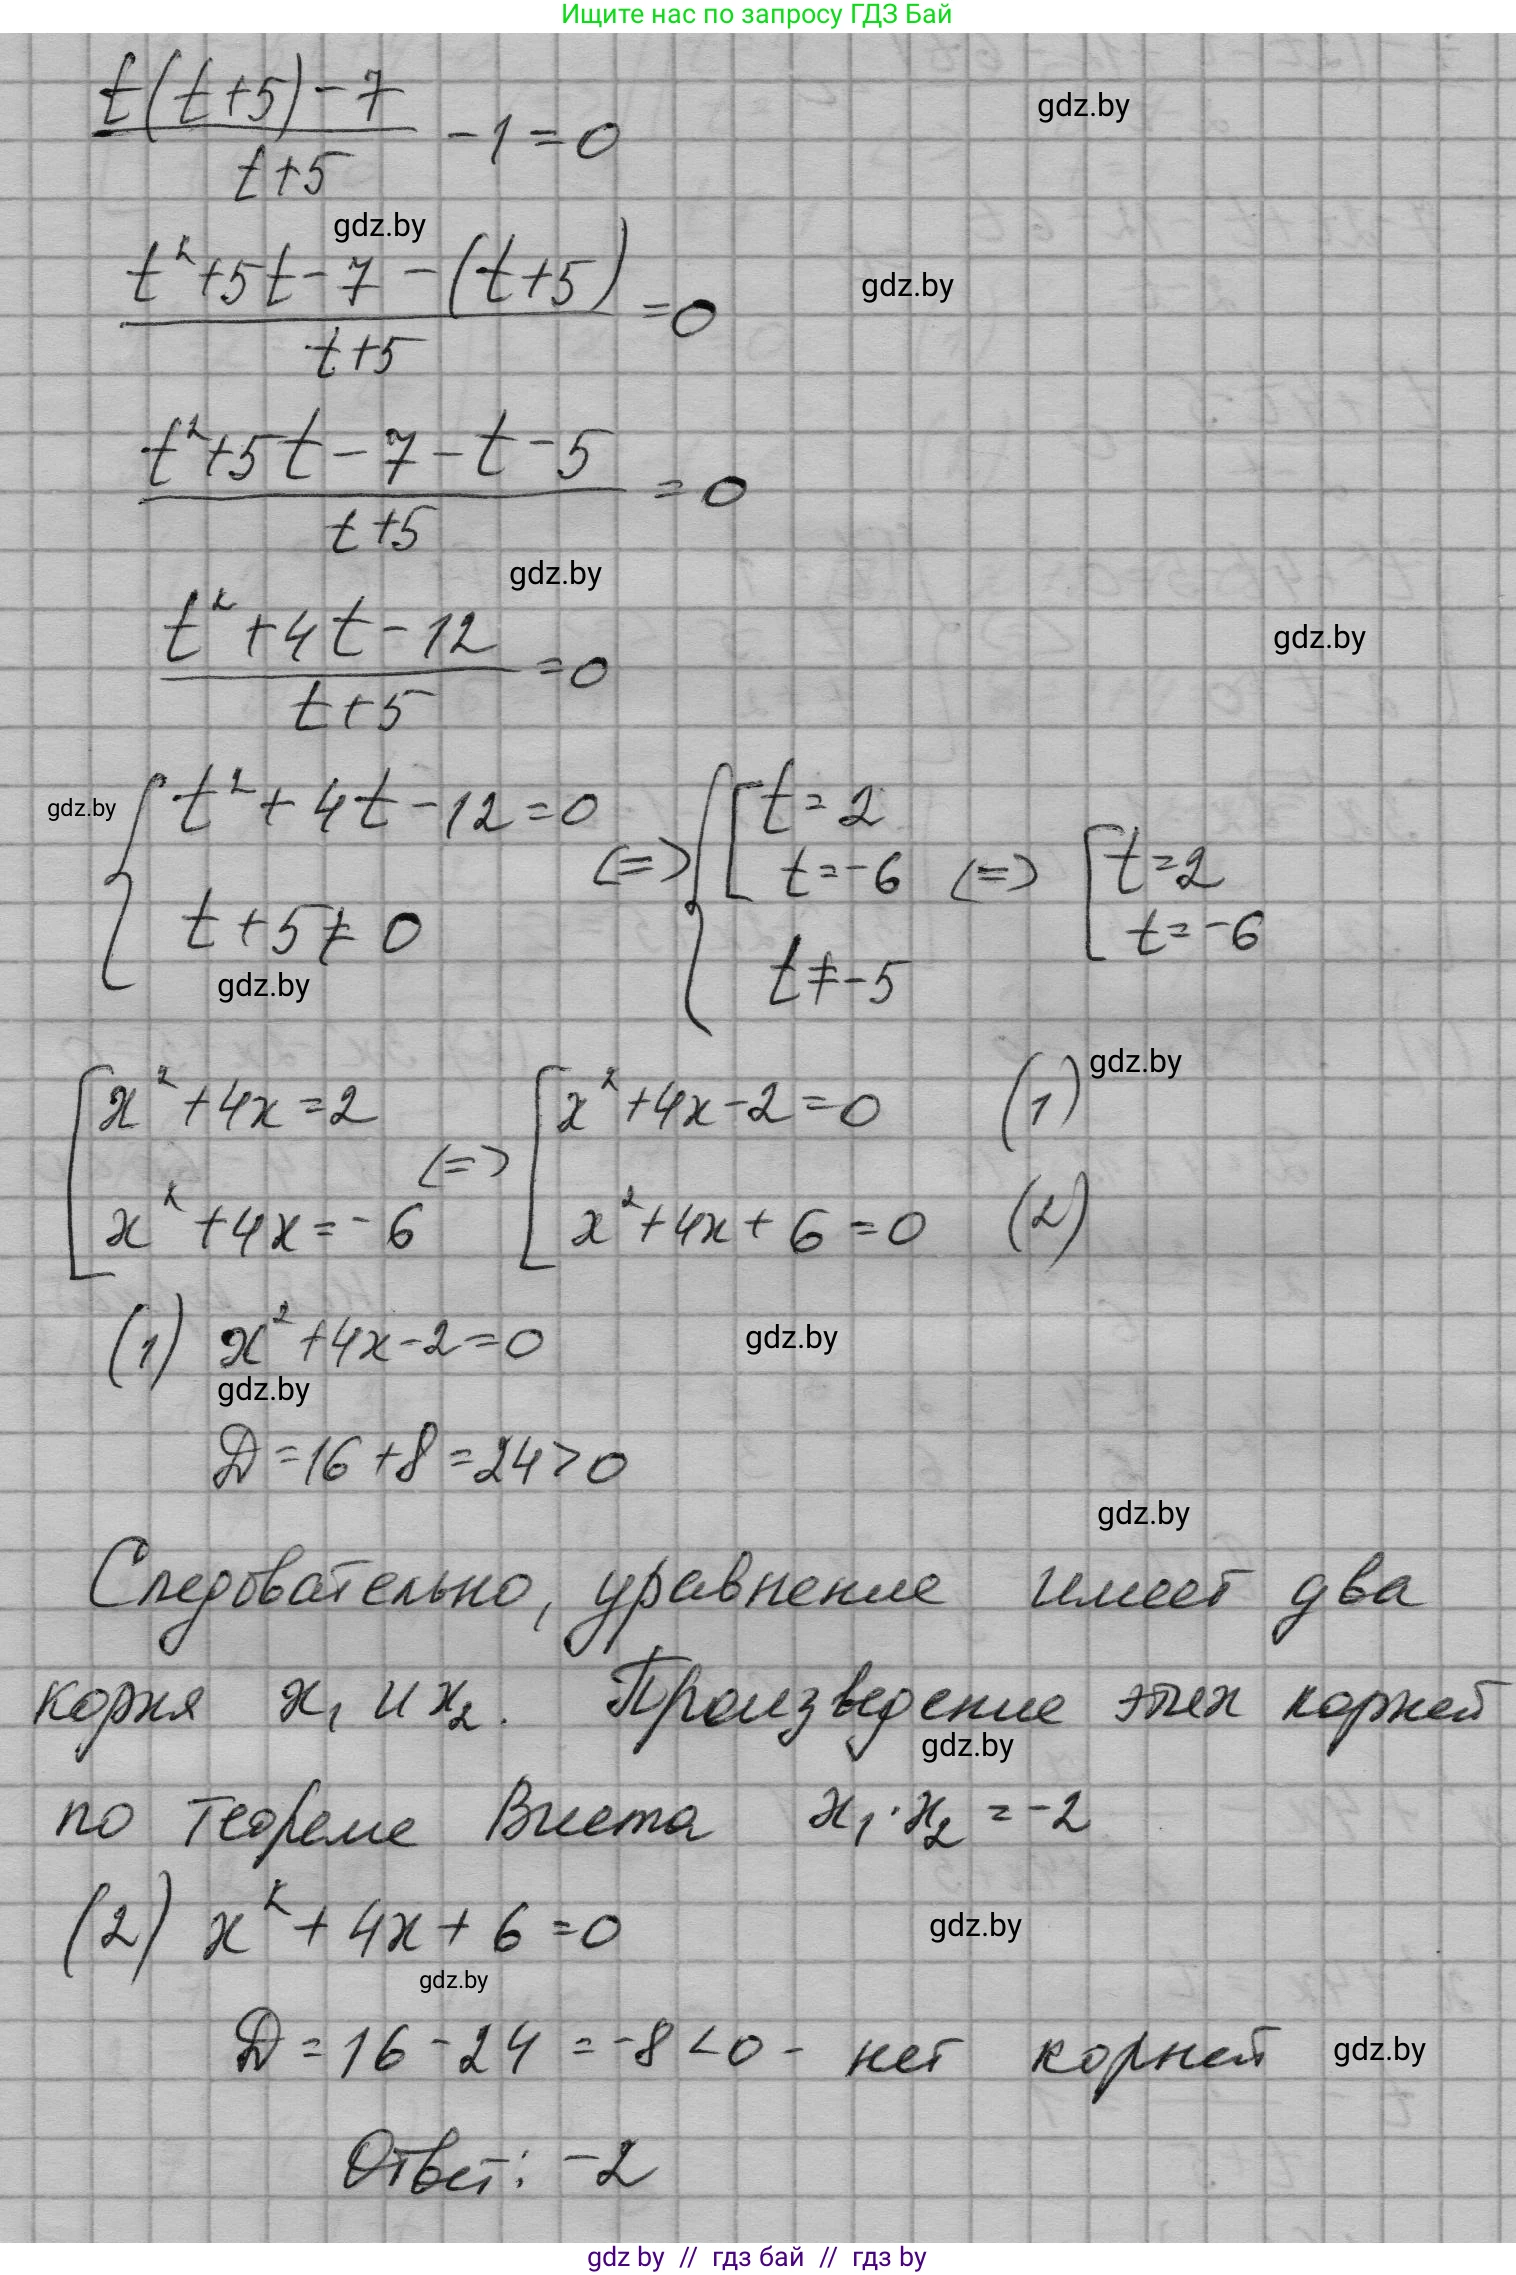 Ищите нас по запросу ГДЗ Бай
t(t+5)-7
/ t+5 -1=0
gdz.by
gdz.by
t²+5t-7-(t+5)
/ t+5 =0
gdz.by
t²+5t-7-t-5
/ t+5 =0
gdz.by
t²+4t-12
/ t+5 =0
gdz.by
gdz.by
{ t²+4t-12=0
t+5≠0 <=> { [ t=2
t=-6
t≠-5 <=> [ t=2
t=-6
gdz.by
gdz.by
[ x²+4x=2
x²+4x=-6 <=> [ x²+4x-2=0 (1)
x²+4x+6=0 (2)
(1) x²+4x-2=0
gdz.by
gdz.by
D=16+8=24>0
gdz.by
Следовательно, уравнение имеет два
корня x₁ и x₂. Произведение этих корней
gdz.by
по теореме Виета x₁·x₂=-2
(2) x²+4x+6=0
gdz.by
gdz.by
D=16-24=-8<0 - нет корней
gdz.by
Ответ: -2
gdz by // гдз бай // гдз by